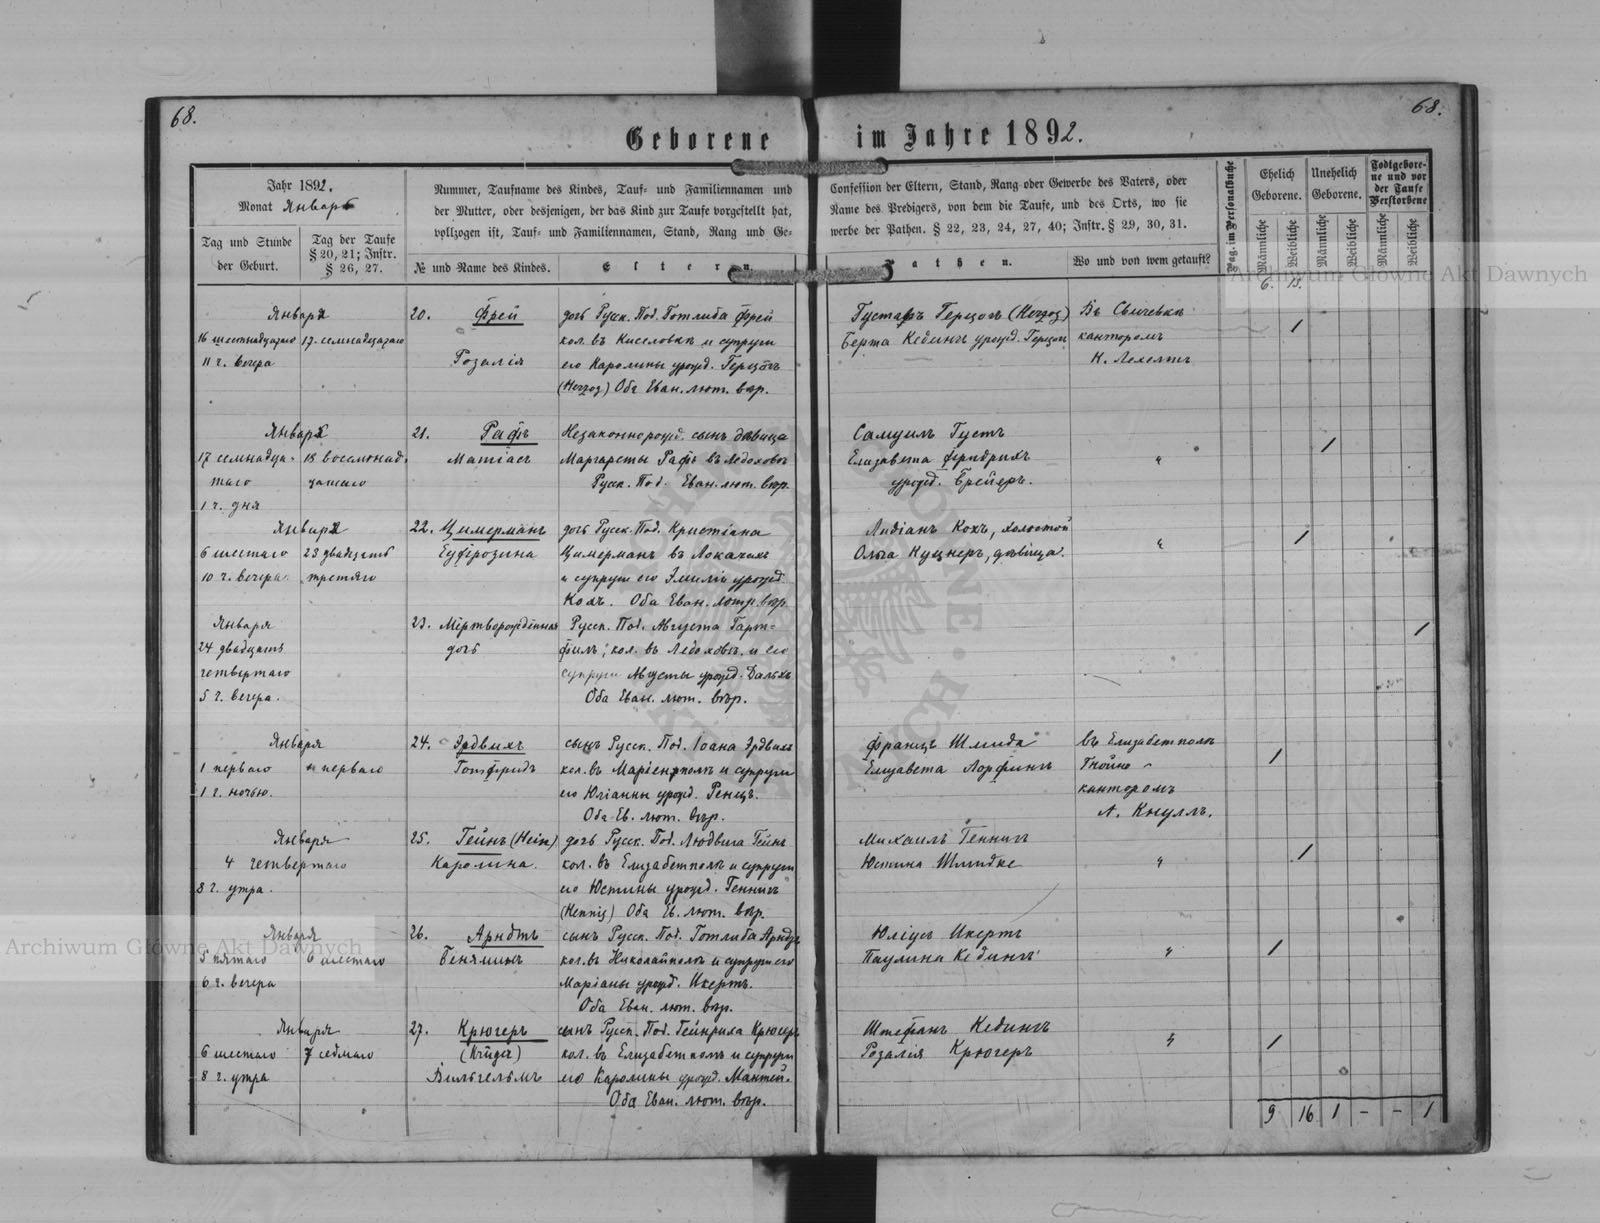 68.
68.
Geborene im Jahre 1892.
Jahr 1892.
Monat Январь
Tag und Stunde der Geburt.
Tag der Taufe § 20, 21; Instr. § 26, 27.
Nummer, Taufname des Kindes, Tauf- und Familiennamen und
der Mutter, oder desjenigen, der das Kind zur Taufe vorgestellt hat,
vollzogen ist, Tauf- und Familiennamen, Stand, Rang und Ge-
№ und Name des Kindes.
Eltern.
Confession der Eltern, Stand, Rang oder Gewerbe des Vaters, oder
Name des Predigers, von dem die Taufe, und des Orts, wo sie
werbe der Pathen. § 22, 23, 24, 27, 40; Instr. § 29, 30, 31.
Pathen.
Wo und von wem getauft?
Pag. im Personalbuche
Ehelich Geborene.
Unehelich Geborene.
Todtgeborene und vor der Taufe Verstorbene
Männliche
Weibliche
Männliche
Weibliche
Männliche
Weibliche
6. 13.
Января
16 шестнадцатаго
11 ч. вечера
17. семнадцатаго
20. Фрей
Розалія
дочь Русск. Под. Готлиба Фрей
кол. въ Киселовкѣ и супруги
его Каролины урожд. Герцогъ
(Herzog) Оба Еван. лют. вѣр.
Густавъ Герцогъ (Herzog)
Берта Кедингъ урожд. Герцогъ
Въ Свичевкѣ
канторомъ
1
Января
17 семнадца-
таго
1 ч. дня
18 восемнад.
цатаго
21. Рафъ
Матіасъ
Незаконнорожд. сынъ дѣвицы
Маргареты Рафъ въ Ледоховкѣ
Русск. Под. Еван. лют. вѣр.
Самуилъ Густъ
Елизавета Фридрихъ
урожд. Брейеръ.
"
1
Января
6 шестаго
10 ч. вечера
23 двадцать
третяго
22. Цимерманъ
Еуфрозина
дочь Русск. Под. Кристіана
Цимерманъ въ Локачахъ
и супруги его Эмиліи урожд.
Кохъ. Оба Еван. лютр. вѣр.
Лидіанъ Кохъ, холостой
Ольга Куцнеръ, дѣвица.
"
1
Января
24 двадцать
четвертаго
5 ч. вечера.
23. Мертворожденная
дочь
Русск. Под. Августа Гарт-
филь, кол. въ Ледоховкѣ и его
супруги Августы урожд. Дальхъ
Оба Еван. лют. вѣр.
1
Января
1 перваго
1 ч. ночью.
перваго
24. Эрдвихъ
Готфридъ
сынъ Русск. Под. Іоана Эрдвихъ
кол. въ Маріенполѣ и супруги
его Юліанны урожд. Ренцъ.
Оба Ев. лют. вѣр.
Францъ Шмидъ
Елизавета Лорфингъ
въ Елизабетполѣ
Гнойно
канторомъ
А. Кнуллъ.
1
Января
4 четвертаго
8 ч. утра.
25. Гейнъ (Hein)
Каролина.
дочь Русск. Под. Людвига Гейнъ
кол. въ Елизабетполѣ и супруги
его Юстины урожд. Геннигъ
(Hennig) Оба Ев. лют. вѣр.
Михаилъ Геннигъ
Юстина Шмидке
"
1
Января
5 пятаго
6 ч. вечера
6 шестаго
26. Арндтъ
Беняминъ
сынъ Русск. Под. Готлиба Арндтъ
кол. въ Николайполѣ и супруги его
Маріаны урожд. Икертъ.
Оба Еван. лют. вѣр.
Юліусъ Икертъ
Паулина Кедингъ
"
1
Января
6 шестаго
8 ч. утра
7 седмаго
27. Крюгеръ
(Krüger)
Вильгельмъ
сынъ Русск. Под. Гейнриха Крюгеръ
кол. въ Елизабетполѣ и супруги
его Каролины урожд. Мантей.
Оба Еван. лют. вѣр.
Штефанъ Кедингъ
Розалія Крюгеръ
"
1
9 16 1 - - 1
Archiwum Główne Akt Dawnych
Archiwum Główne Akt Dawnych